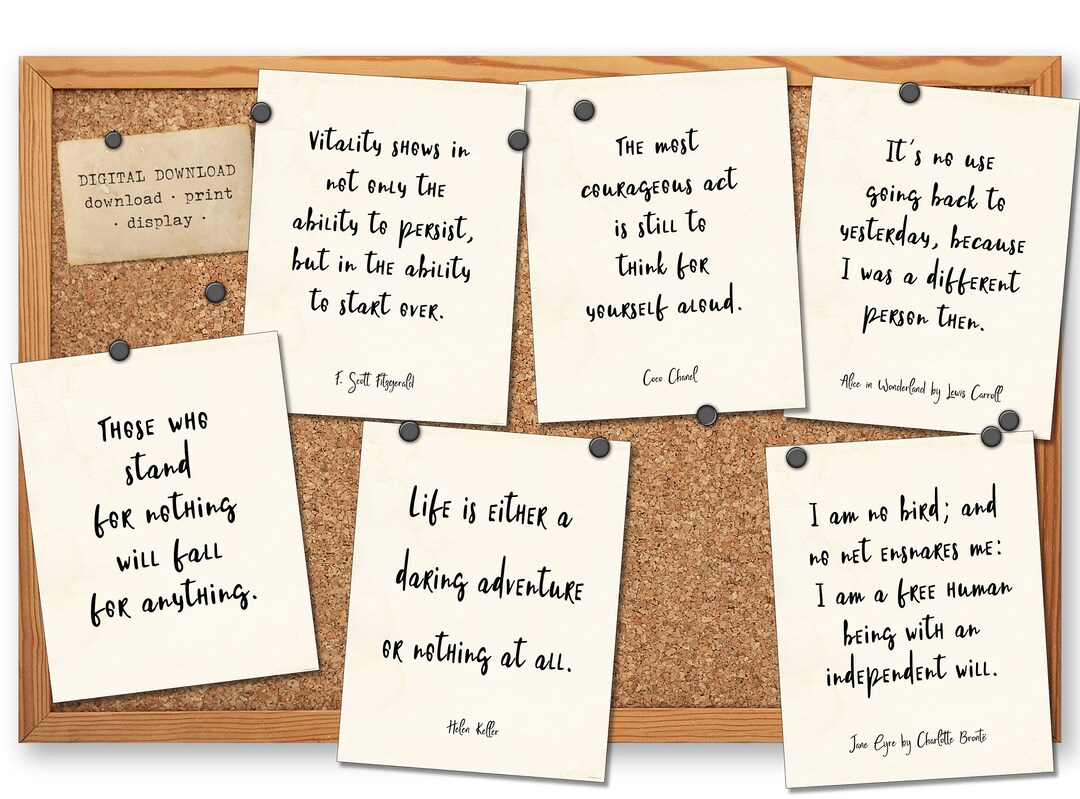 DIGITAL DOWNLOAD
download · print
· display ·
Vitality shows in
not only the
ability to persist,
but in the ability
to start over.
F. Scott Fitzgerald
The most
courageous act
is still to
think for
yourself aloud.
Coco Chanel
It's no use
going back to
yesterday, because
I was a different
person then.
Alice in Wonderland by Lewis Carroll
Those who
stand
for nothing
will fall
for anything.
Life is either a
daring adventure
or nothing at all.
Helen Keller
I am no bird; and
no net ensnares me:
I am a free human
being with an
independent will.
Jane Eyre by Charlotte Brontë